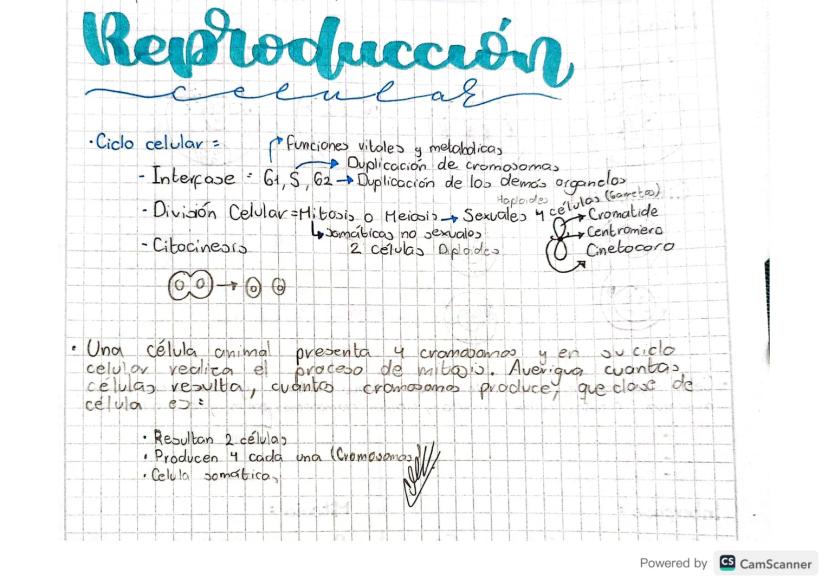 Reproducción
celular
• Ciclo celular =
Funciones vitales y metabolicas
Duplicación de cromosomas
- Interfase = G1, S, G2 → Duplicación de los demás organelos
Haploides
- División Celular = Mitosis o Meiosis → Sexuales 4 células (Gametos)
Cromatide
↳ somáticas no sexuales
Centromero
- Citocinesis
2 células Diploides
Cinetocoro
• Una célula animal presenta 4 cromosomas y en su ciclo
celular realiza el proceso de mitosis. Averigua cuantas
células resulta, cuántos cromosomas produce, que clase de
célula es:
• Resultan 2 células
• Producen 4 cada una (Cromosomas)
• Celula somática
Powered by CS CamScanner